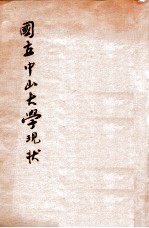 國立中山大學現狀